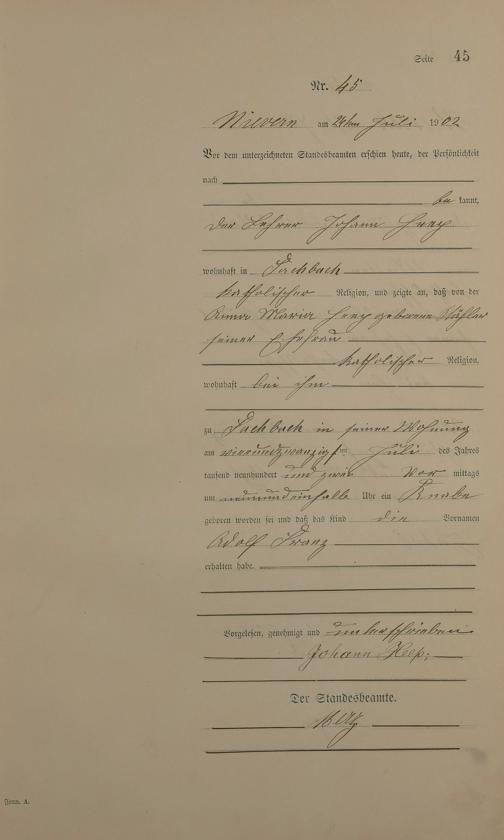 Seite 45
Nr. 45
Nievern am 28ten Juli 1902
Vor dem unterzeichneten Standesbeamten erschien heute, der Persönlichkeit
nach
be kannt,
der Lehrer Johann Heep
wohnhaft in Fachbach
katholischer Religion, und zeigte an, daß von der
Anna Maria Heep geborene
seiner Ehefrau
katholischer Religion,
wohnhaft bei ihm
zu Fachbach in seiner Wohnung
am vierundzwanzigsten Juli des Jahres
tausend neunhundert und zwei Vor mittags
um Uhr ein Knabe
geboren worden sei und daß das Kind die Vornamen
Adolf Franz
erhalten habe.
Vorgelesen, genehmigt und unterschrieben
Johann Heep.
Der Standesbeamte.
Form. A.